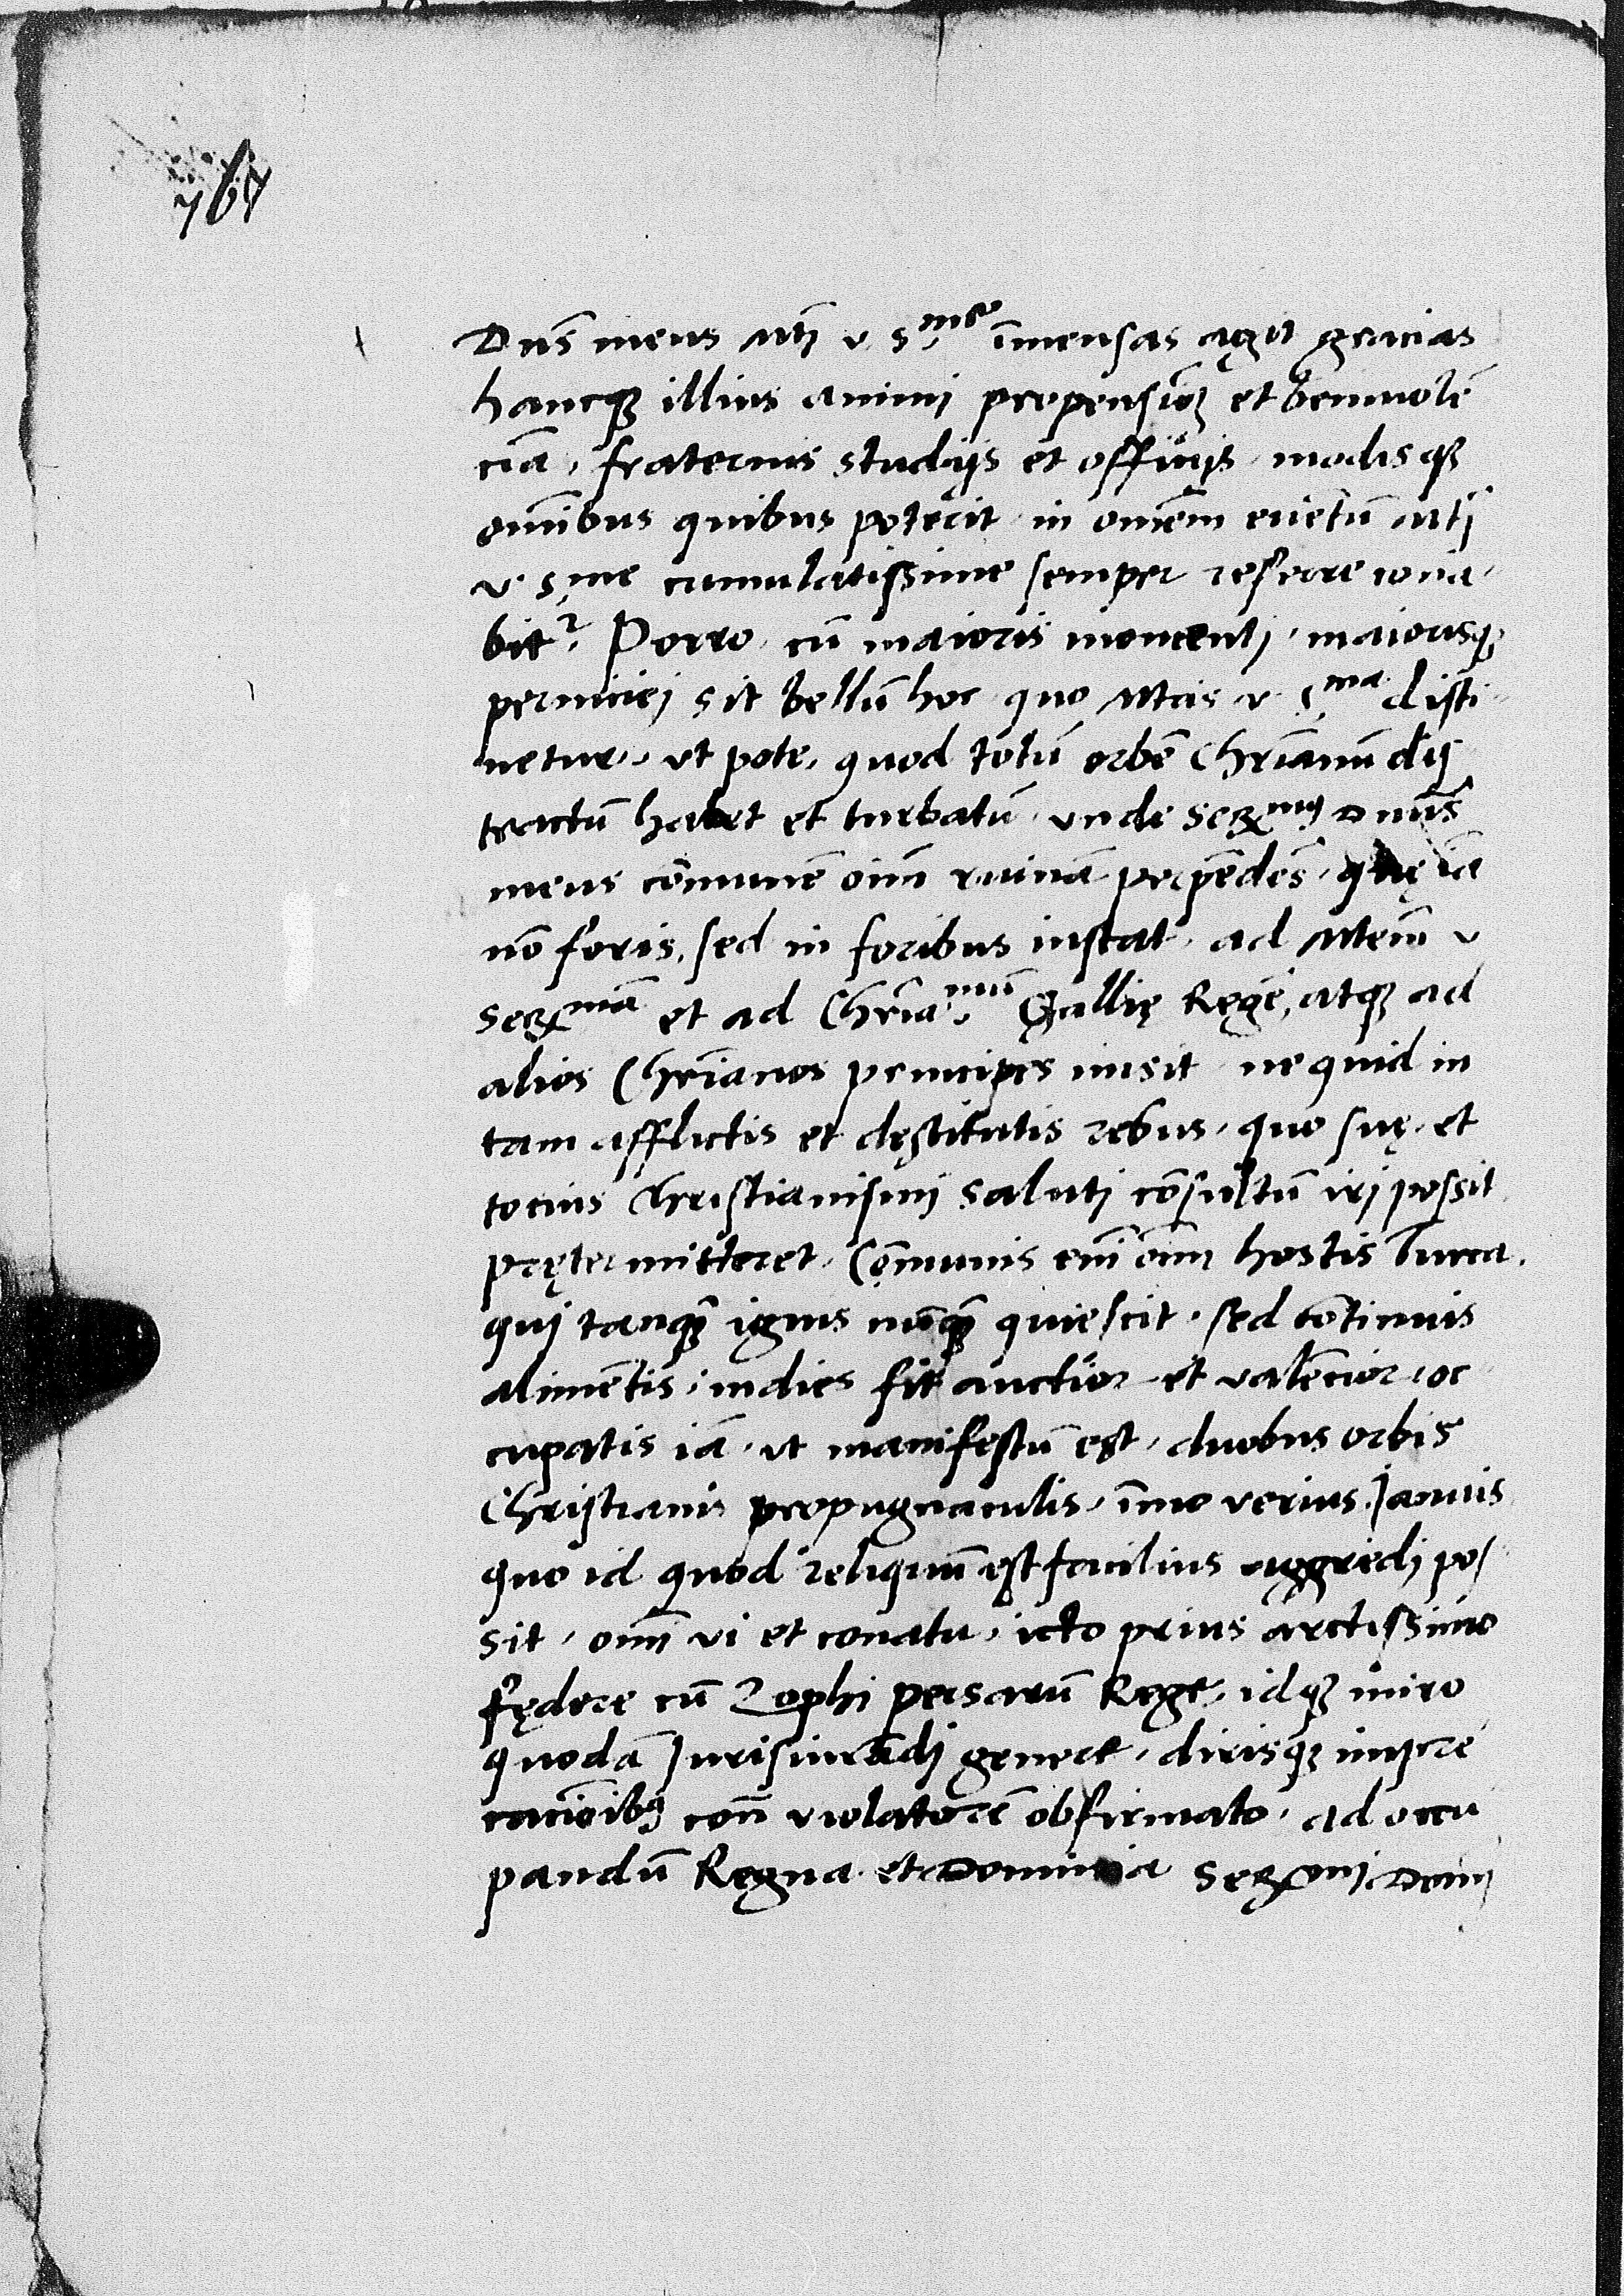 767
Dn̄s meus Mtj v. s.me īmensas agit gracias
hancq₃ illius animi propensiōȝ et beniuolē
ciā, fraternis studijs et officijs, modis q₃
om̄ibus quibus poterit in om̄em euētū Mtj
v. s.me cumulatissime semper referre cona
bit². Porro cū maioris momentj, maiorisq₃
perniciej sit bellū hoc quo Mtas v. s.ma disti
netur, ut pote, quod totū orbē Chr̄ianū dis
tractū habet et turbatū, unde Serx̄mus Dn̄us
meus cōmunē oīm ruinā perpēdēs, quę iā
nō foris, sed in foribus instat, ad Mtem v
Serx̄mā et ad Chr̄ia.mū Gallię Regē, atq₃ ad
alios Chr̄ianos principes misit ne quid in
tam afflictis et destitutis rebus, quo suę, et
tocius Christianismj salutj cōsultū irj possit
prętermitteret. Cōmunis em̄ oīm hostis Turca,
quj tanq̄ ignis nūq̄ quiescit, sed cōtinuis
alimētis, indies fit auctior et valēcior, oc
cupatis iā, ut manifestū est, duobus orbis
Christianis propugnaculis, īmo verius Januis
quo id quod reliquū est facilius aggredj pos
sit, om̄j vi et conatu, icto prius arctissimo
fędere cū Zophi persarū Rege, idq₃ miro
quodā Jurisiurādj genere, dirisq₃ impre
cacioībus con̄ violatorē obfirmato, ad occu
pandū Regna et Dominia Serx̄mj Domj